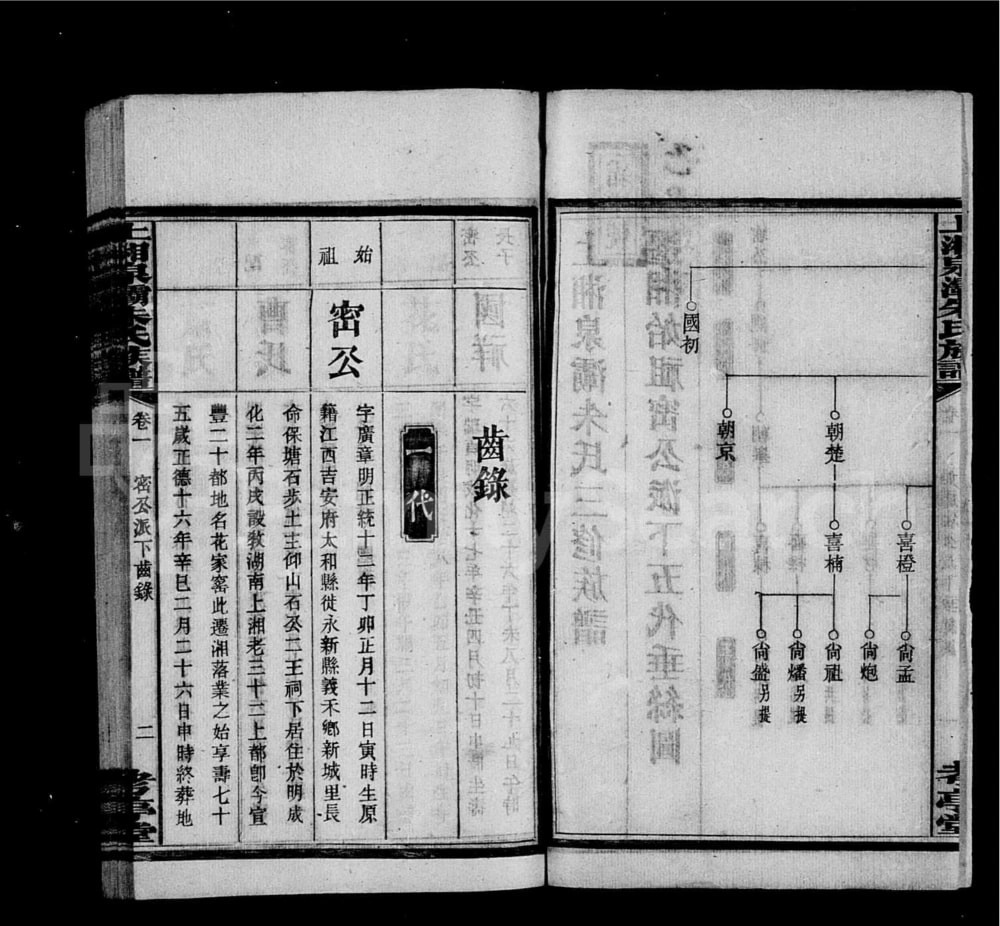 上湘泉灞朱氏族譜
卷一
老亭堂
國初
朝楚
朝京
喜橙
喜楠
尚孟
尚炮
尚祖
尚燔另提
尚盛另提
齒錄
一代
始祖
密公
字廣章明正統十二年丁卯正月十二日寅時生原
籍江西吉安府太和縣徙永新縣義禾鄉新城里長
命保塘石步土主仰山石公二王祠下居住於明成
化二年丙戌設教湖南上湘老三十三上都卽今宣
豐二十都地名花家窑此遷湘落業之始享壽七十
五歲正德十六年辛巳二月二十六日申時終葬地
上湘泉灞朱氏族譜
卷一
密公派下齒錄
二
老亭堂